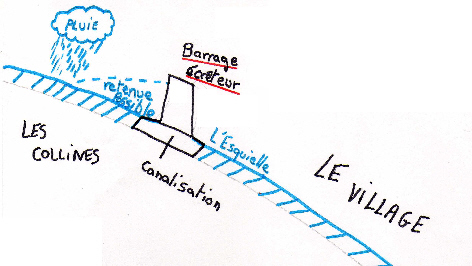 PLUIE
Barrage
écrêteur
retenue
possible
LES
COLLINES
L'Esquielle
Canalisation
LE VILLAGE